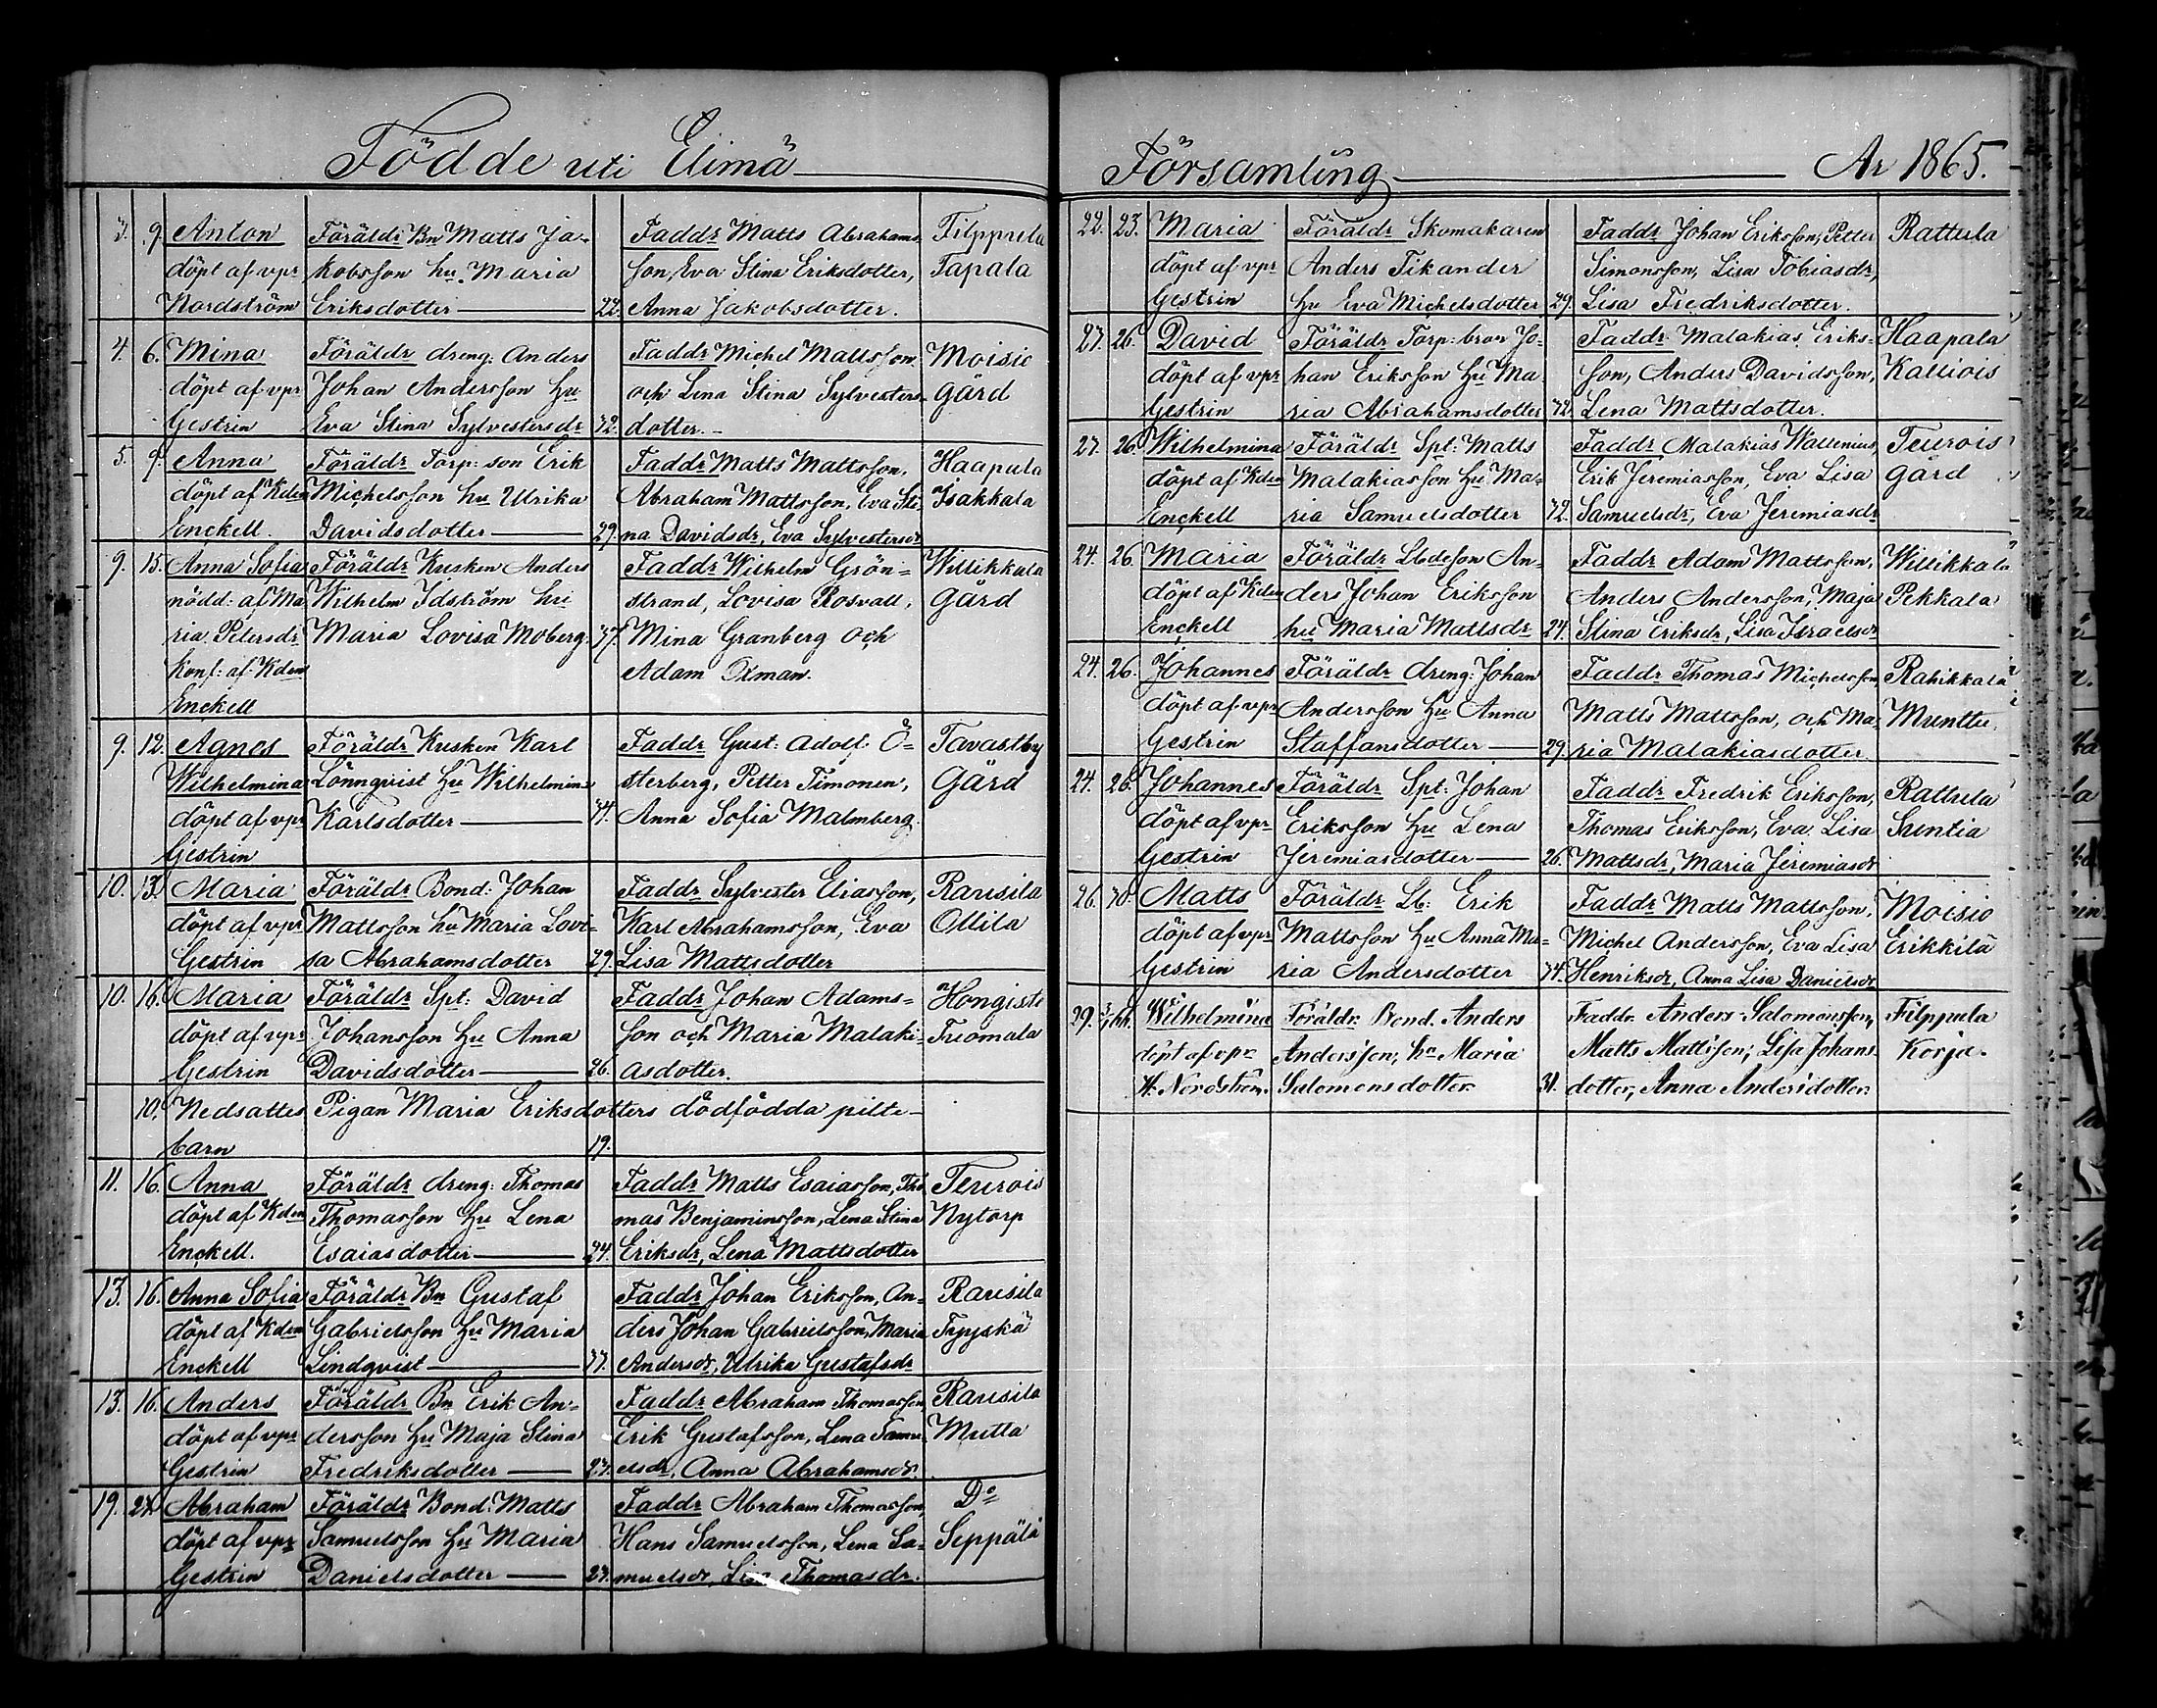 Födde uti Elimä
3. 9. Anton Föräldr Bn Matts Ja- Faddr Matts Abrahams- Filppula
döpt af vpr kobsson hu. Maria son, Eva Stina Eriksdotter, Tapala
Nordström Eriksdotter 22. Anna Jakobsdotter.
4. 6. Mina Föräldr dreng: Anders Faddr Michel Mattsson Moisio
döpt af vpr Johan Andersson hu och Lena Stina Sylvesters- gård
Gestrin Eva Stina Sylvestersdr 32. dotter.
5. 9. Anna Föräldr Torp: son Erik Faddr Matts Mattsson, Haapula
döpt af Kden Michelsson hu Ulrika Abraham Mattsson, Eva Sti- Isakkala
Enckell. Davidsdotter 29. na Davidsdr, Eva Sylvestersdr
9. 15. Anna Sofia Föräldr Kusken Anders Faddr Wilhelm Grön= Willikkala
nödd: af Ma Wilhelm Idström hu strand, Lovisa Rosvall, Gård
ria Petersdr Maria Lovisa Moberg. 37. Mina Granberg och
konf: af Kden Adam Oxman.
Enckell
9. 12. Agnes Föräldr Kusken Karl Faddr Gust: Adolf: Ö= Tavastby
Wilhelmina Lönnqvist hu Wilhelmina sterberg, Petter Timonen, Gård
döpt af vpr Karlsdotter 34. Anna Sofia Malmberg.
Gestrin
10. 13. Maria Föräldr Bond: Johan Faddr Sylvester Eliasson, Rausila
döpt af vpr Mattsson hu Maria Lovi- Karl Abrahamsson, Eva Ollila
Gestrin sa Abrahamsdotter 29. Lisa Mattsdotter
10. 16. Maria Föräldr Spt: David Faddr Johan Adams= Hongisto
döpt af vpr Johansson hu Anna son och Maria Malaki-
Gestrin Davidsdotter 26. asdotter.
10. Nedsattes Pigan Maria Eriksdotters dödfödda pilte-
barn 19.
11. 16. Anna Föräldr dreng: Thomas Faddr Matts Esaiasson, Tho Teurois
döpt af Kden Thomasson hu Lena mas Benjaminsson, Lena Stina Nytorp
Enckell. Esaiasdotter 24. Eriksdr, Lena Mattsdotter
13. 16. Anna Sofia Föräldr Bn Gustaf Faddr Johan Eriksson, An- Rausila
döpt af Kden Gabrielsson hu Maria ders Johan Gabrielsson, Maria
Enckell Lindqvist 37. Andersdr, Ulrika Gustafsdr
13. 16. Anders Föräldr Bn Erik An- Faddr Abraham Thomasson Rausila
döpt af vpr dersson hu Maja Stina Erik Gustafsson, Lena Samu- Mutta
Gestrin Fredriksdotter 23. elsdr, Anna Abrahamsdr.
19. Abraham Föräldr Bond: Matts Faddr Abraham Thomasson, Do
döpt af vpr Samuelsson hu Maria Hans Samuelsson, Lena Sa- Seppälä
Gestrin Danielsdotter 23. muelsdr, Lisa Thomasdr.
Församling Ar 1865.
22. 23. Maria Föräldr Skomakaren Faddr Johan Eriksson, Petter Rattula
döpt af vpr Anders Tikander Simonsson, Lisa Tobiasdr,
Gestrin hu Eva Michelsdotter 29. Lisa Fredriksdotter.
23. 26. David Föräldr Torp: bron Jo- Faddr Malakias Eriks- Haapala
döpt af vpr han Eriksson hu Ma son, Anders Davidsson, Kalliois
Gestrin ria Abrahamsdotter 32. Lena Mattsdotter.
23. 26. Wilhelmina Föräldr Spt: Matts Faddr Malakias Wallenius, Teurois
döpt af Kden Malakiasson hu Ma- Erik Jeremiasson, Eva Lisa gård
Enckell ria Samuelsdotter 32. Samuelsdr, Eva Jeremiasdr
24. 26. Maria Föräldr Lbdeson An- Faddr Adam Mattsson, Willikkala
döpt af Kden ders Johan Eriksson Anders Andersson, Maja Pekkala
Enckell hu Maria Mattsdr 24. Stina Eriksdr, Lisa Israelsdr
24. 26. Johannes Föräldr dreng: Johan Faddr Thomas Michelsson Rahikkala
döpt af vpr Andersson hu Anna Matts Mattsson, och Ma- Munttu.
Gestrin Staffansdotter 29. ria Malakiasdotter
24. 26. Johannes Föräldr Spt: Johan Faddr Fredrik Eriksson, Rattula
döpt af vpr Eriksson hu Lena Thomas Eriksson, Eva Lisa Suntia
Gestrin Jeremiasdotter 26. Mattsdr, Maria Jeremiasdr
26. 30. Matts Föräldr Lb: Erik Faddr Matts Mattsson, Moisio
döpt af vpr Mattsson hu Anna Ma- Michel Andersson, Eva Lisa Erikkilä
Gestrin ria Andersdotter 34. Henriksdr, Anna Lisa Danielsdr
29. Wilhelmina Föräldr. Bond. Anders Faddr. Anders Salomonsson, Filppula
döpt af vpr Andersson, hu Maria Matts Mattsson, Lisa Johans- Korja.
H. Nordström. Salomonsdotter 31. dotter, Anna Andersdotter.